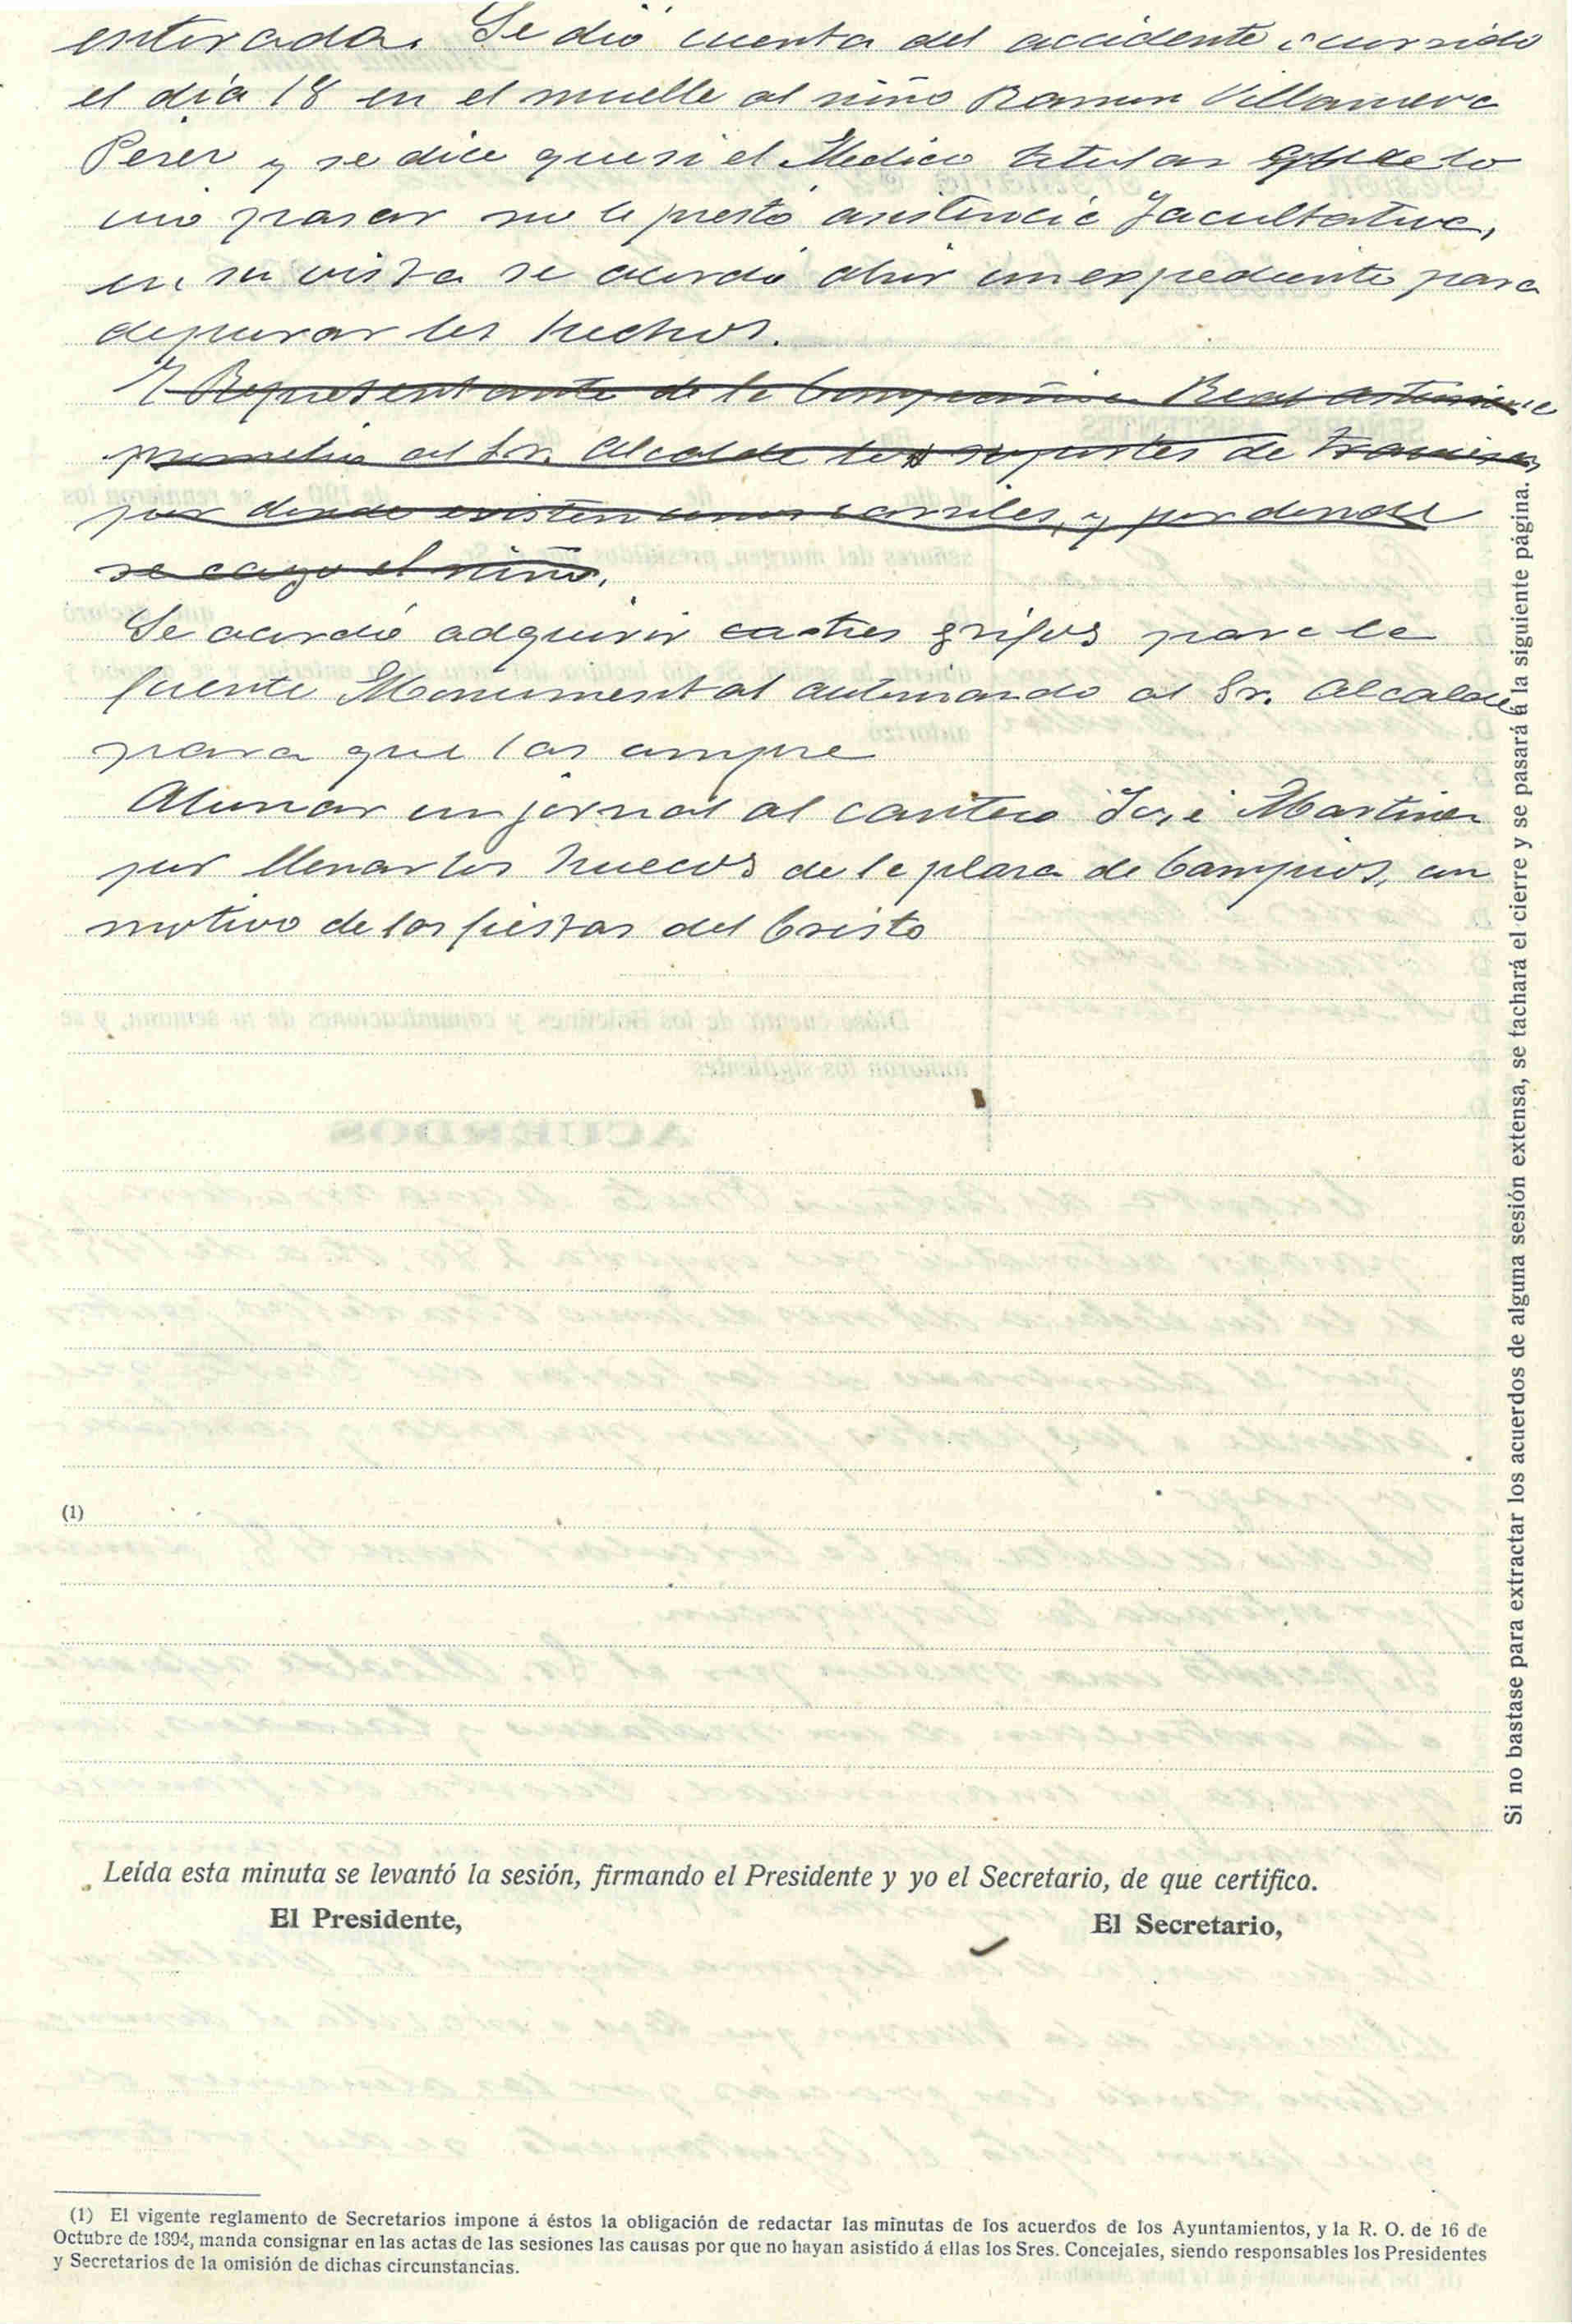 enterada. Se dió cuenta del accidente ocurrido
el día 18 en el muelle al niño Ramon Villanueva
Perez y se dice que si el Medico titular que lo
vio pasar no le prestó asistencia facultativa,
en su vista se acordó abrir un expediente para
depurar los hechos.
El Representante de la Compañia Real Asturiana
prometio al Sr. Alcalde los soportes de
por donde existen unos carriles, y por donde
se cayo el niño.
Se acordó adquirir tres grifos para la
fuente Monumental autorizando al Sr. Alcalde
para que los compre
Abonar un jornal al cantero José Martinez
por llenar los huecos de la plaza de Campios, con
motivo de las fiestas del Cristo
(1)
Leída esta minuta se levantó la sesión, firmando el Presidente y yo el Secretario, de que certifico.
El Presidente,
El Secretario,
(1) El vigente reglamento de Secretarios impone á éstos la obligación de redactar las minutas de los acuerdos de los Ayuntamientos, y la R. O. de 16 de
Octubre de 1894, manda consignar en las actas de las sesiones las causas por que no hayan asistido á ellas los Sres. Concejales, siendo responsables los Presidentes
y Secretarios de la omisión de dichas circunstancias.
Si no bastase para extractar los acuerdos de alguna sesión extensa, se tachará el cierre y se pasará á la siguiente página.